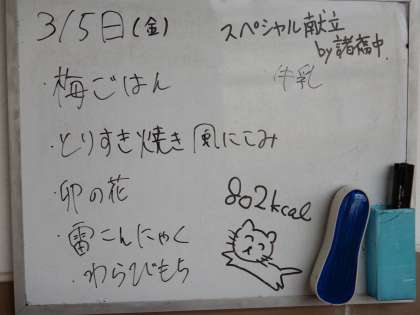 3/5日(金)
スペシャル献立
by諸福中
牛乳
・梅ごはん
・とりすき焼き風にこみ
・卯の花
802kcal
・雷こんにゃく
・わらびもち